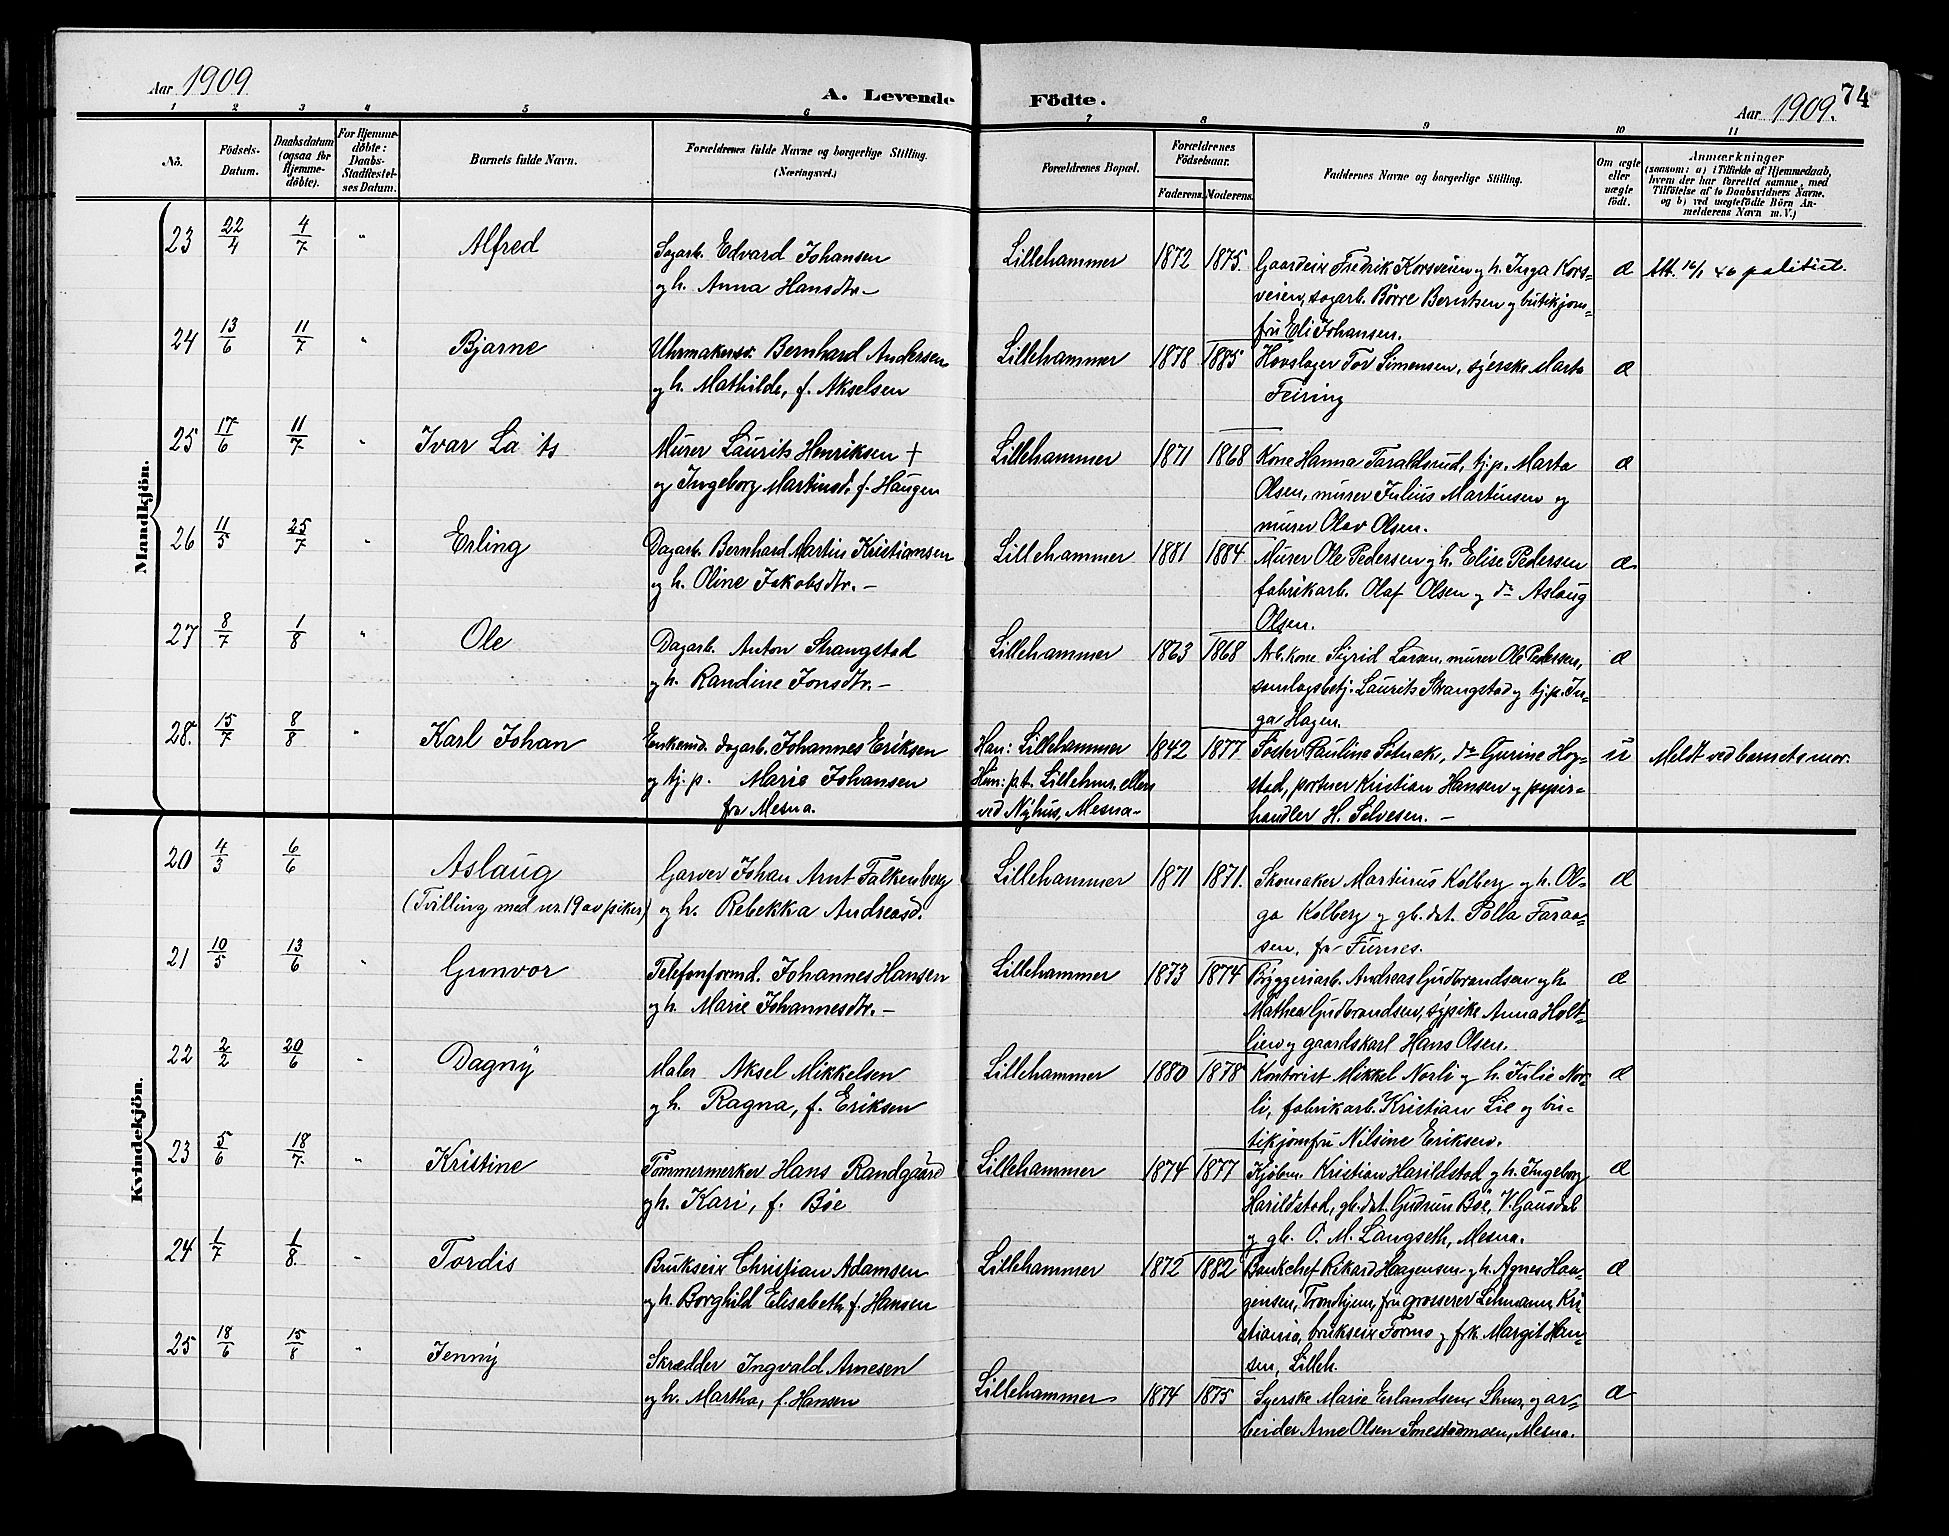 Aar 1909
A. Levende Födte.
Aar 1909.
74
1 2 3 4 5 6 7 8 9 10 11
No.
Födsels-Datum.
Daabsdatum (ogsaa for Hjemme-döbte).
For Hjemme-döbte: Daabs-Stadfæstel-ses Datum.
Barnets fulde Navn.
Forældrenes fulde Navne og borgerlige Stilling. (Næringsvei.)
Forældrenes Bopæl.
Forældrenes Födselsaar.
Faderens. Moderens.
Faddernes Navne og borgerlige Stilling.
Om ægte eller uægte födt.
Anmærkninger
(saasom: a) i Tilfælde af Hjemmedaab,
hvem der har forrettet samme, med
Tilföielse af to Daabsvidners Navne.
og b) ved uægtefödte Börn An-
melderens Navn m. V.)
Mandkjön.
23 22/4 4/7 " Alfred
Sagarb. Edvard Johansen
og h. Anna Hansdtr. -
Lillehammer 1872 1875.
Gaardeier Fredrik Korsveien og h. Inga Kors-
veien, sagarb. Börre Berntsen og butikjom-
fru Eli Johansen.
æ
Att. 16/1 46 politiet.
24 13/6 11/7 " Bjarne
Uhrmakersv. Bernhard Andersen
og h. Mathilde, f. Akselsen
Lillehammer 1878 1885
Hovslager Tov Simensen, syerske Marta
Feiring
æ
25 17/6 11/7 " Ivar La ts
Murer Laurits Henriksen +
og Ingeborg Martinsd. f. Haugen
Lillehammer 1871 1868
Kone Hanna Taraldsrud, tj.p. Marta
Olsen, murer Julius Martinsen og
murer Olav Olsen.
æ
26 11/5 25/7 " Erling
Dagarb. Bernhard Martin Kristiansen
og h. Oline Jakobsdtr. -
Lillehammer 1881 1884
Murer Ole Pedersen og h. Elise Pedersen
fabrikarb. Olaf Olsen og do Aslaug
Olsen.
æ
27 8/7 1/8 " Ole
Dagarb. Anton Strangstad
og h. Randine Jonsdtr. -
Lillehammer 1863 1868
Arb.kone Sigrid Larsen, murer Ole Pedersen,
samlagsbetj. Laurits Strangstad og tj.p. In-
ga Hagen.
æ
28. 15/7 8/8 " Karl Johan
Enkemd. dagarb. Johannes Eriksen
og tj.p. Marie Johansen
fra Mesna.
Han: Lillehammer
Hun: p.t. Lillehmr. ellers
ved Nyhus, Mesna-
1842 1877
Söster Pauline Solnak, do Gurine Hog-
stad, portner Kristian Hansen og papir-
handler H. Sølvesen. -
u
Meldt ved barnets mor.
Kvindekjön.
20 4/3 6/6 Aslaug
(Tvilling med nr. 19 av piker)
Garver Johan Arnt Falkenberg
og h. Rebekka Andreasd.
Lillehammer 1871 1871.
Skomaker Martinus Kolberg og h. Ol-
ga Kolberg og gb.dat. Polla Faraa-
sen, fr. Furnes.
æ
21 10/5 13/6 " Gunvor
Telefonformd. Johannes Hansen
og h. Marie Johannesdtr. -
Lillehammer 1873 1874
Bryggeriarb. Andreas Gudbrandsen og h.
Mathea Gudbrandsen, sypike Anna Holt-
lien og gaardskarl Hans Olsen.
æ
22 2/2 20/6 " Dagny
Maler Aksel Mikkelsen
og h. Ragna, f. Eriksen
Lillehammer 1880 1878
Kontorist Mikkel Norli og h. Julie Nor-
li, fabrikarb. Kristian Lie og bu-
tikjomfru Nilsine Eriksen.
æ
23 5/6 18/7. " Kristine
Tømmermerker Hans Randgaard
og h. Kari, f. Böe
Lillehammer 1874 1877
Kjøbm. Kristian Harildstad og h. Ingeborg
Harildstad, gb.dat. Gudrun Böe, V. Gausdal
og gb. O. M. Langseth, Mesna.
æ
24 1/7 1/8. " Tordis
Brukseier Christian Adamsen
og h. Borghild Elisabeth f. Hansen
Lillehammer 1872 1882
Bankchef Rikard Haagensen og h. Agnes Haa-
gensen, Trondhjem, fru grosserer Lehmann, Kri
stiania, brukseier Formo og frk. Margit Han-
sen, Lilleh.
æ
25 18/6 15/8 " Jenny
Skrædder Ingvald Arnesen
og h. Martha, f. Hansen
Lillehammer 1874 1875
Syerske Marie Erlandsen og ar-
beider Arne Olsen Smestadmoen, Mesna.
æ